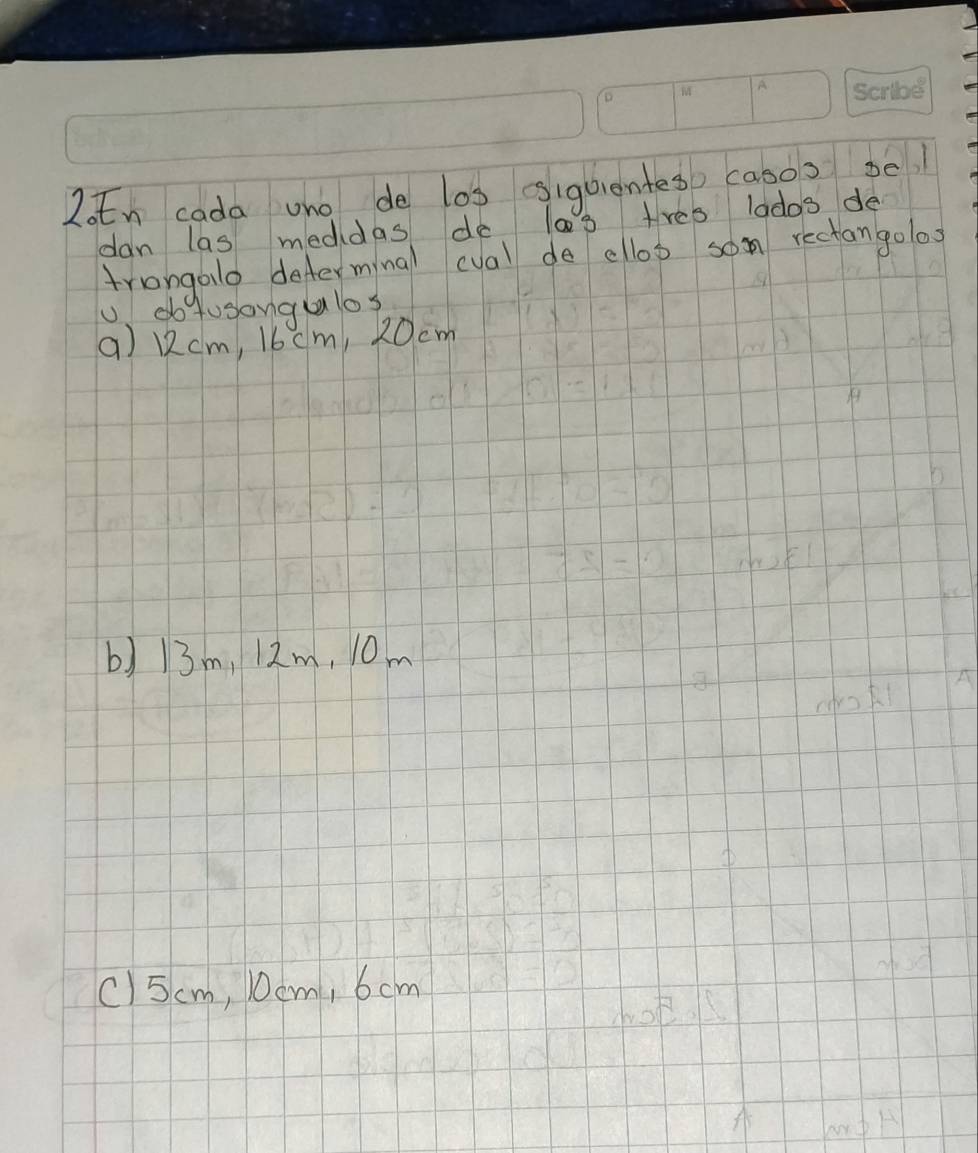 D M A Scribe
2. En cada uno de los siguientes casos se
dan las medidas de las tres lados de
triangolo determinal cual de ellos son rectangolos
u obtusangualos
a) 12cm, 16cm, 20cm
b) 13m, 12m, 10m
c) 5cm, 10cm, 6cm